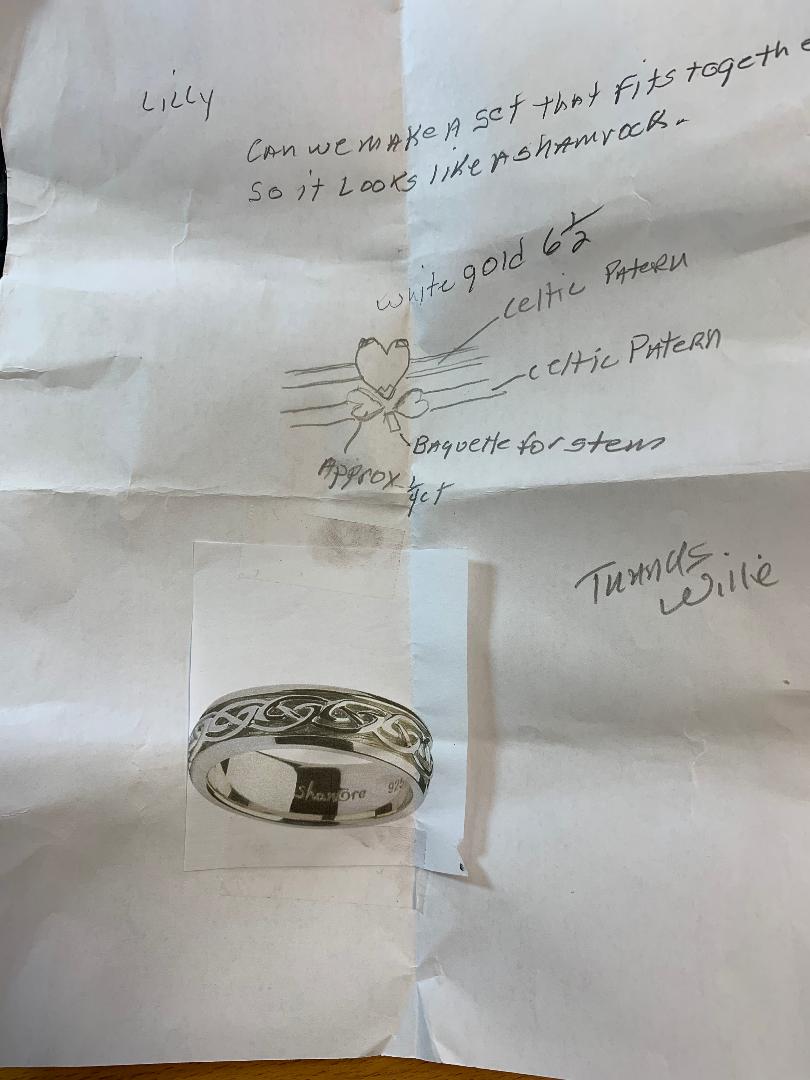 Lilly
CAN we MAKe A set that Fits togethe
So it Looks like A shamrock.
White gold 6 1/2
celtic PATERN
celtic PATERN
BAquette for stem
Approx 1/4 ct
Willie
Shanore 925